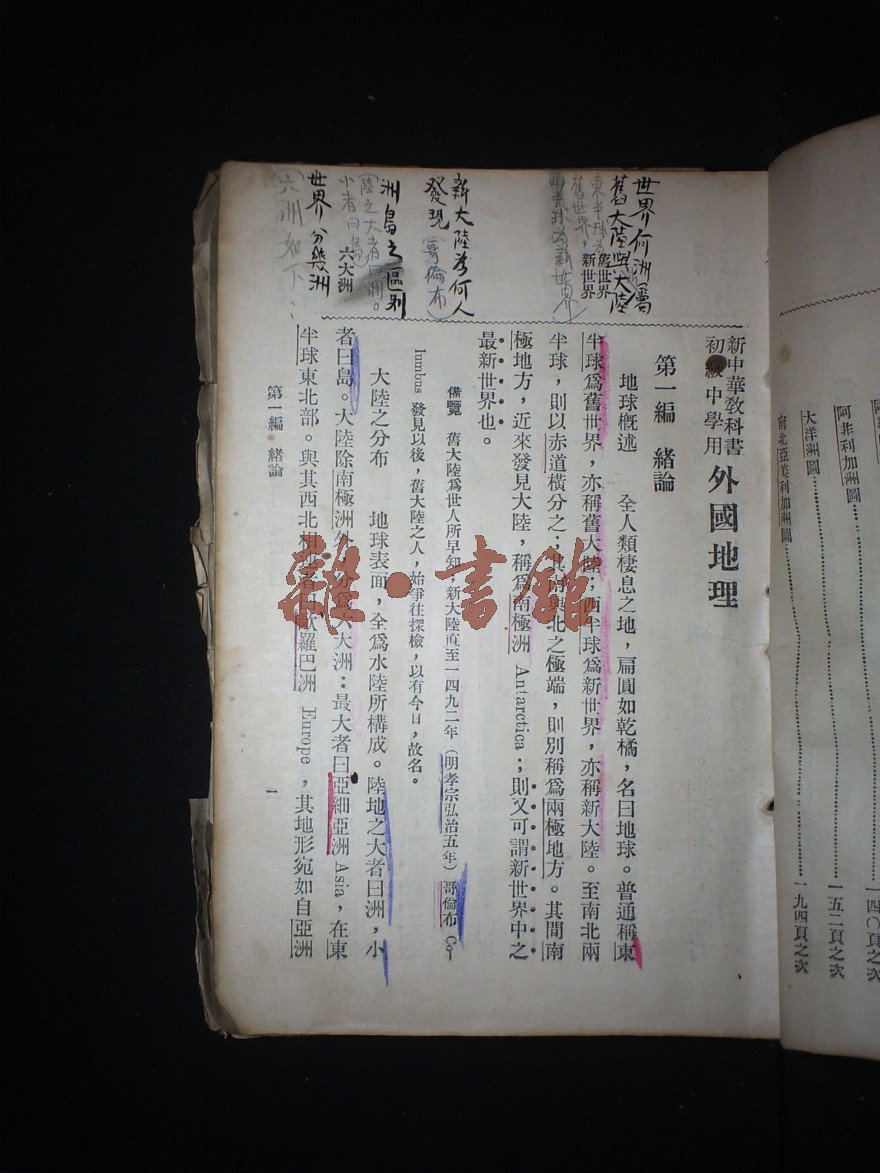 新中華教科書
初級中學用
外國地理
第一編　緒論
地球概述　全人類棲息之地，扁圓如乾橘，名曰地球。普通稱東
半球爲舊世界，亦稱舊大陸；西半球爲新世界，亦稱新大陸。至南北兩
半球，則以赤道橫分之；其南與北之極端，則別稱爲兩極地方。其間南
極地方，近來發見大陸，稱爲南極洲 Antarctica；則又可謂新世界中之
最新世界也。
備覽　舊大陸爲世人所早知，新大陸直至一四九二年（明孝宗弘治五年）哥倫布 Co-
lumbus 發見以後，舊大陸之人，始爭往探檢，以有今日，故名。
大陸之分布　地球表面，全爲水陸所構成。陸地之大者曰洲，小
者曰島。大陸除南極洲外，分爲六大洲：最大者曰亞細亞洲 Asia，在東
半球東北部。與其西北相連者曰歐羅巴洲 Europe，其地形宛如自亞洲
第一編　緒論
一
世界何洲屬
舊大陸與大陸
東半球為
舊世界，
西半球為新世界
舊世界
新世界
新大陸為何人
發現（哥倫布）
洲島之區别
陸之大者曰洲。
小者曰島
六大洲
世界分幾洲
六洲如下：
阿非利加洲圖
一四〇頁之次
大洋洲圖
一五二頁之次
南北亞美利加洲圖
一九四頁之次
雜·書館